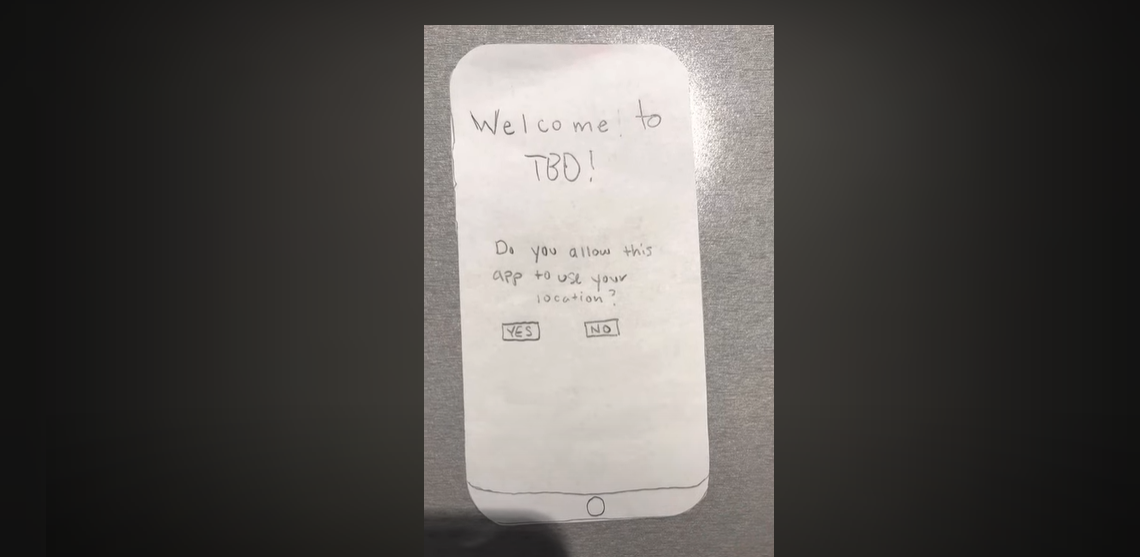 Welcome! to
TBD!
Do you allow this
app to use your
location?
YES NO